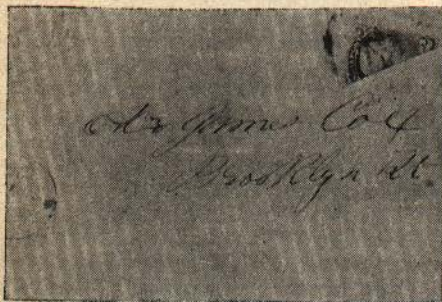 Mr James Cox
Brooklyn